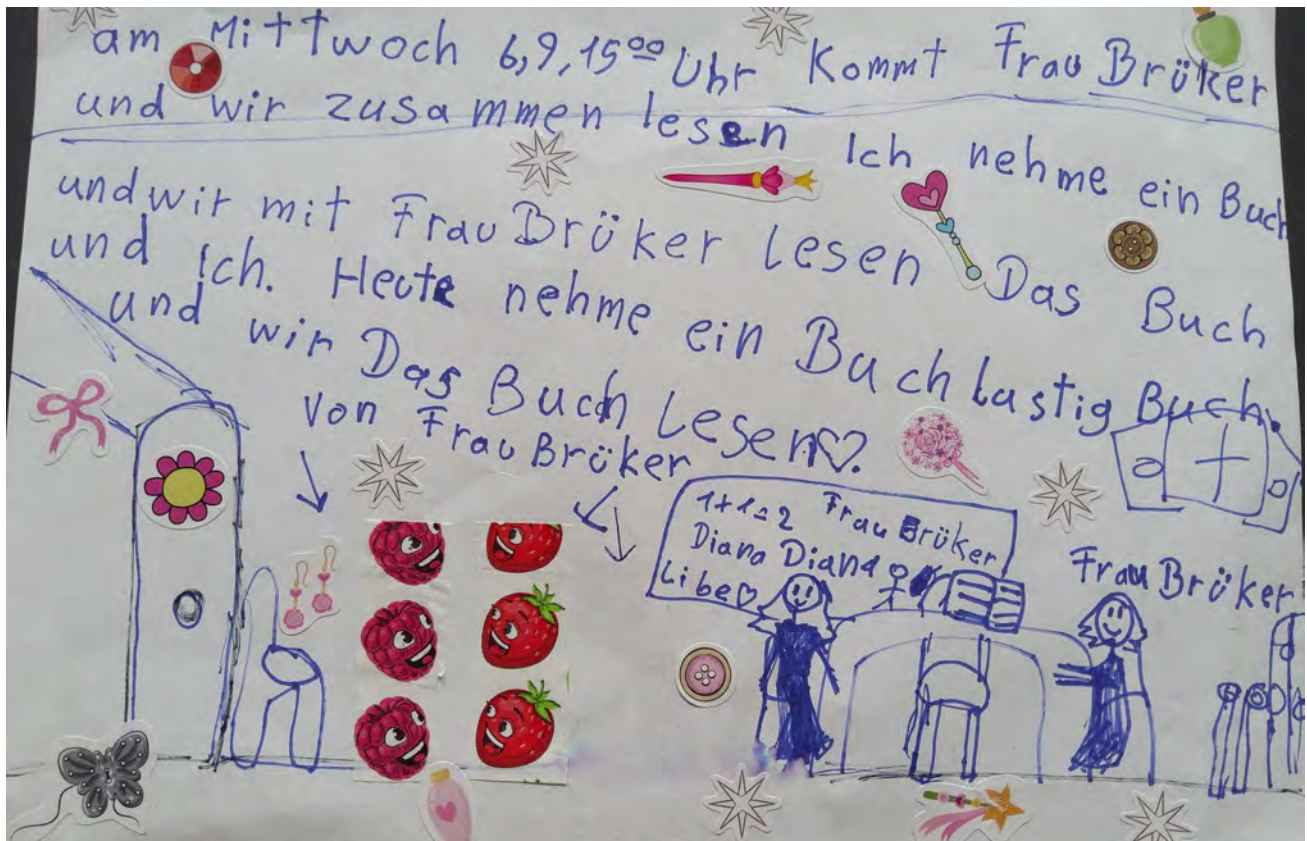 am Mittwoch 6,9,15⁰⁰ Uhr Kommt Frau Brüker
und wir zusammen lesen Ich nehme ein Buch
und wir mit Frau Brüker lesen Das Buch
und ich. Heute nehme ein Buch lastig Buch.
und wir Das Buch Lesen♡.
von Frau Brüker
1+1=2 Frau Brüker
Diana Diana
Libe♡
Frau Brüker